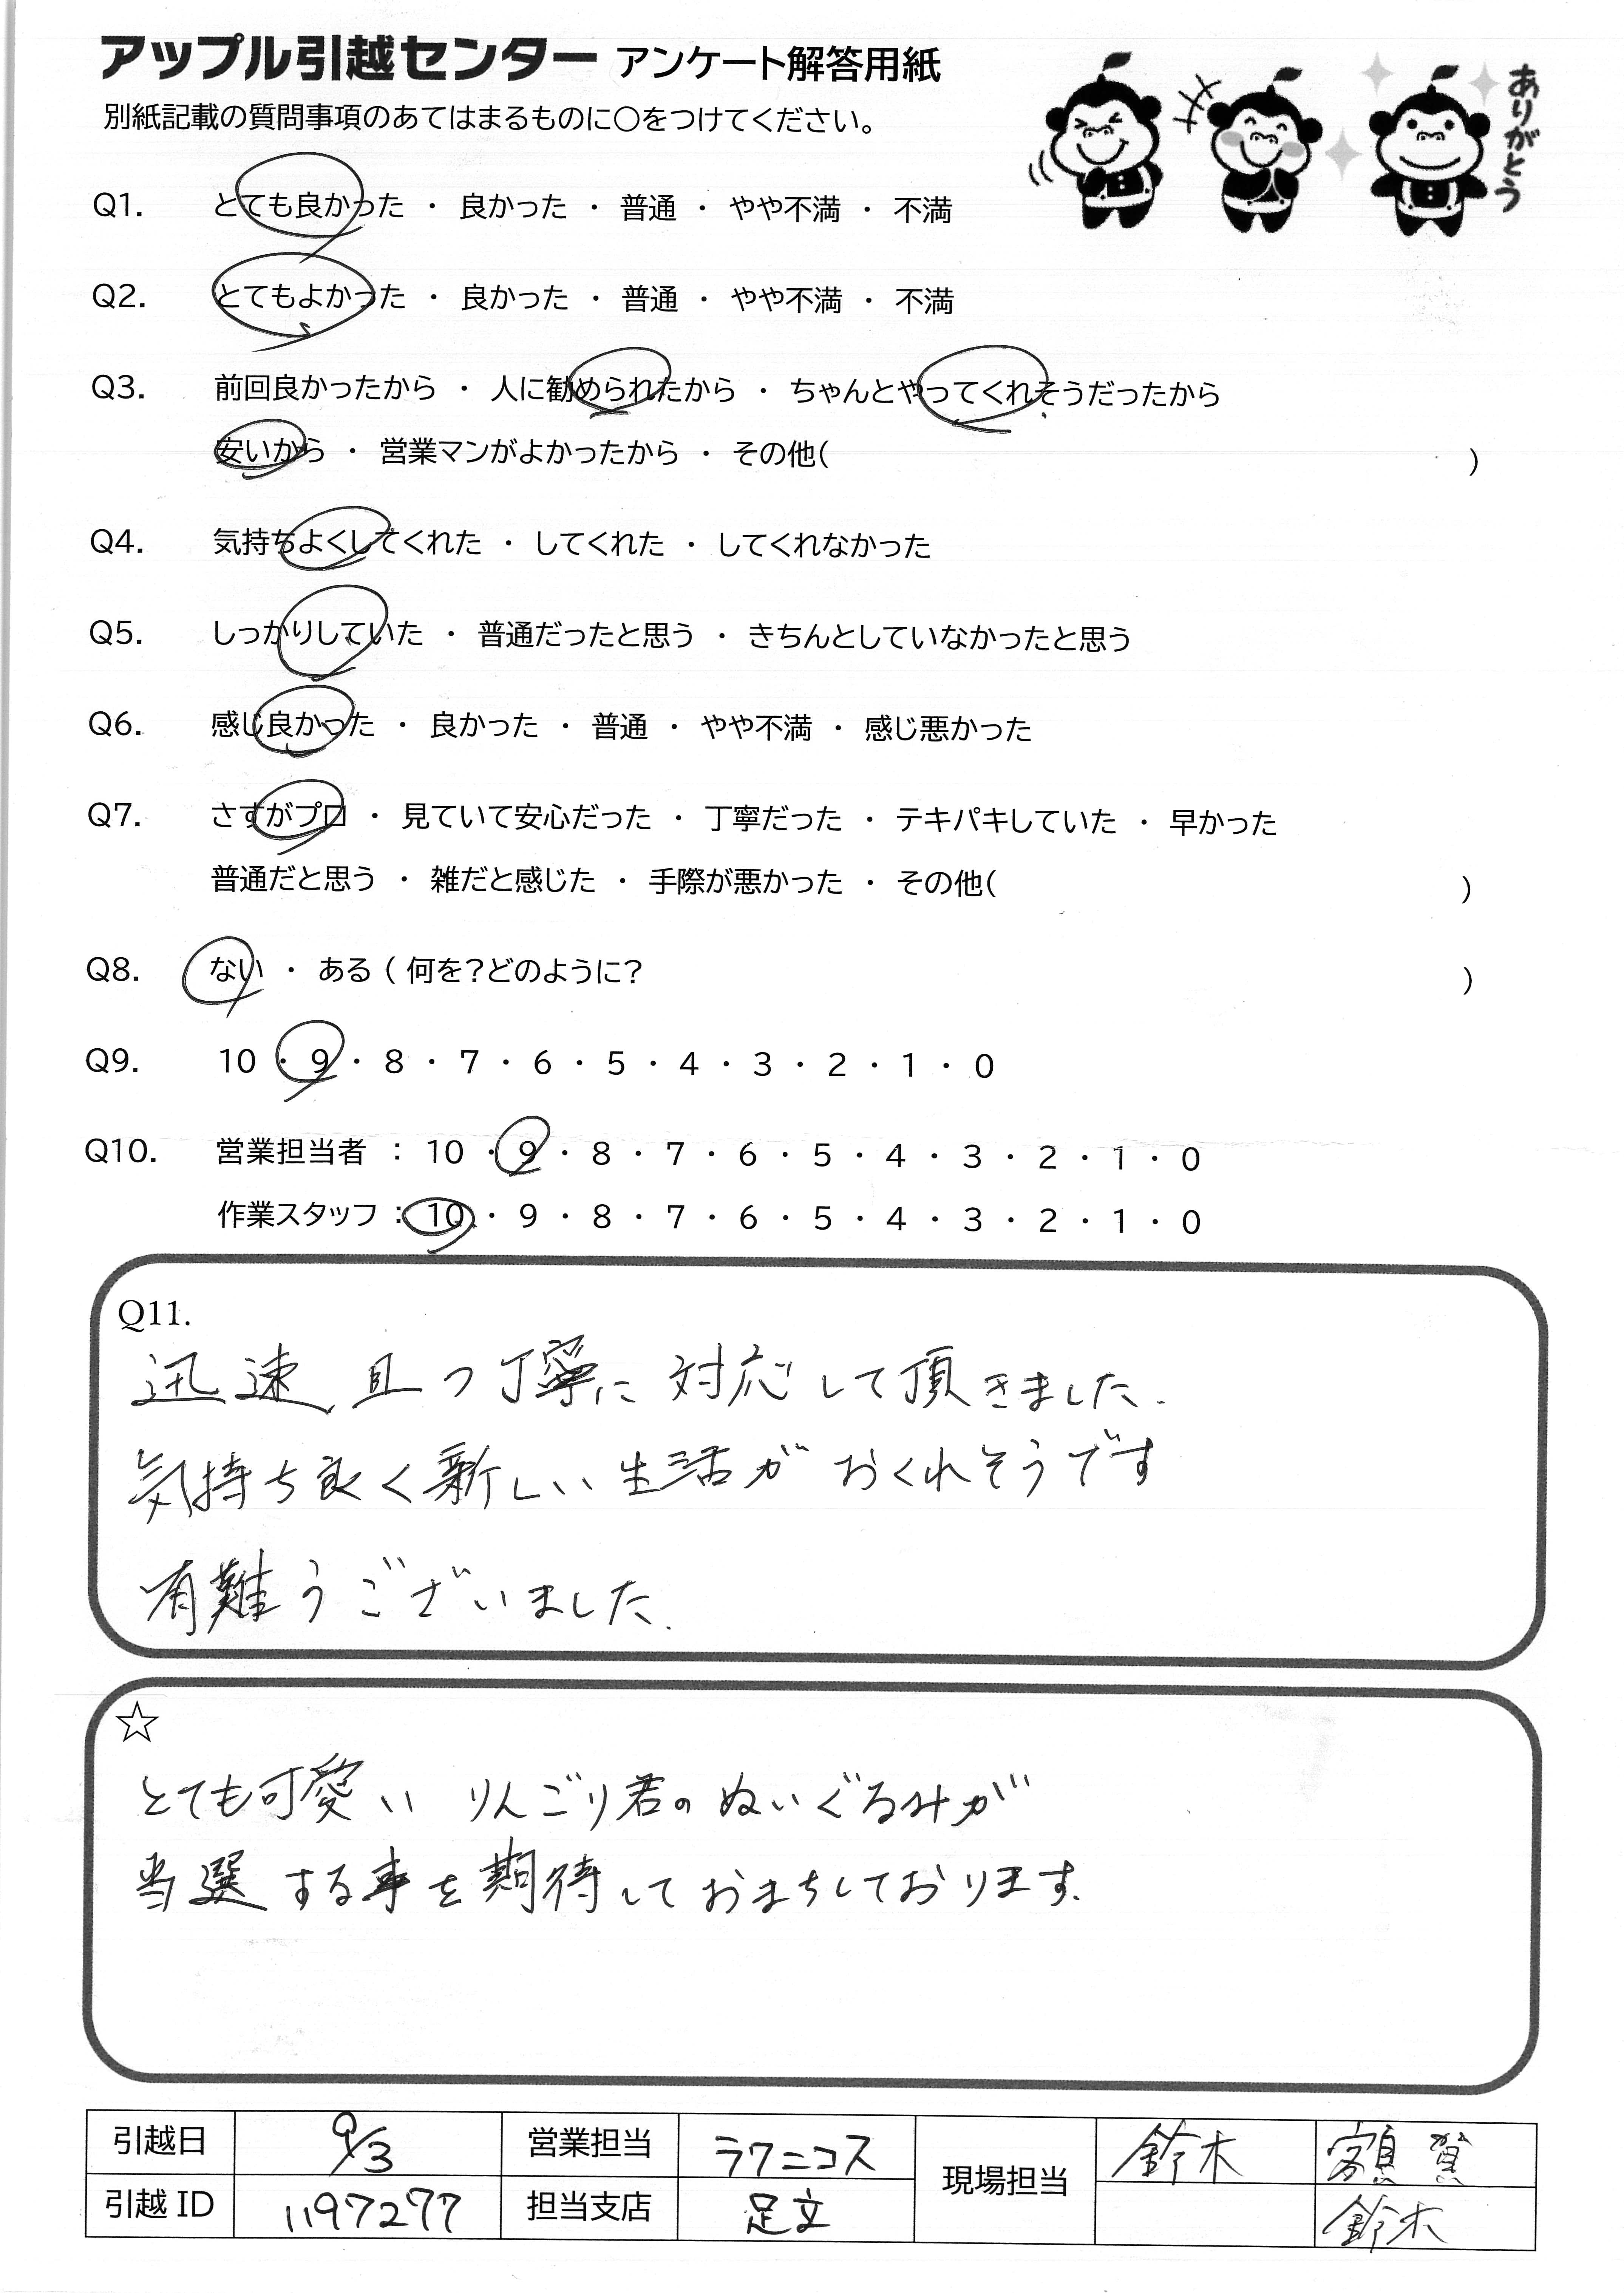 アップル引越センター アンケート解答用紙
別紙記載の質問事項のあてはまるものに〇をつけてください。
ありがとう
Q1. とても良かった ・ 良かった ・ 普通 ・ やや不満 ・ 不満
Q2. とてもよかった ・ 良かった ・ 普通 ・ やや不満 ・ 不満
Q3. 前回良かったから ・ 人に勧められたから ・ ちゃんとやってくれそうだったから
安いから ・ 営業マンがよかったから ・ その他( )
Q4. 気持ちよくしてくれた ・ してくれた ・ してくれなかった
Q5. しっかりしていた ・ 普通だったと思う ・ きちんとしていなかったと思う
Q6. 感じ良かった ・ 良かった ・ 普通 ・ やや不満 ・ 感じ悪かった
Q7. さすがプロ ・ 見ていて安心だった ・ 丁寧だった ・ テキパキしていた ・ 早かった
普通だと思う ・ 雑だと感じた ・ 手際が悪かった ・ その他( )
Q8. ない ・ ある ( 何を?どのように? )
Q9. 10 ・ 9 ・ 8 ・ 7 ・ 6 ・ 5 ・ 4 ・ 3 ・ 2 ・ 1 ・ 0
Q10. 営業担当者 : 10 ・ 9 ・ 8 ・ 7 ・ 6 ・ 5 ・ 4 ・ 3 ・ 2 ・ 1 ・ 0
作業スタッフ : 10 ・ 9 ・ 8 ・ 7 ・ 6 ・ 5 ・ 4 ・ 3 ・ 2 ・ 1 ・ 0
Q11.
迅速、且つ丁寧に対応して頂きました.
気持ち良く新しい生活がおくれそうです
有難うございました.
☆
とても可愛い りんごり君のぬいぐるみが
当選する事を期待しておまちしております.
引越日 9/3 営業担当 ラワニコス 現場担当 鈴木 額賀
引越 ID 1197277 担当支店 足立 鈴木